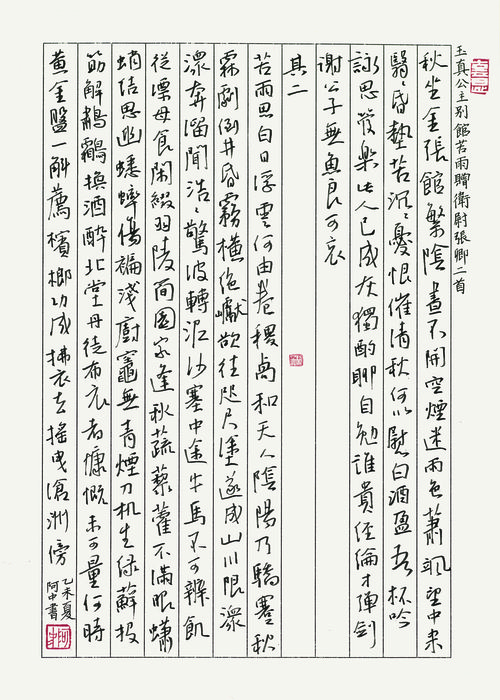 玉真公主别館苦雨贈衛尉張卿二首
秋坐金張館繁陰晝不開空煙迷雨色蕭颯望中来
翳昏墊苦沉〻憂恨催清秋何以慰白酒盈吾杯吟
詠思管樂此人已成灰獨酌聊自勉誰貴經綸才彈劍
謝公子無魚良可哀
其二
苦雨思白日浮雲何由卷稷卨和天人陰陽乃驕蹇秋
霖劇倒井昏霧橫絕巘欲往咫尺塗遂成山川限潨
潨奔溜聞浩〻驚波轉泥沙塞中途牛馬不可辨飢
從漂母食閑綴羽陵簡園家逢秋蔬藜藿不滿眼蠨
蛸結思幽蟋蟀傷褊淺廚竈無青煙刀机生綠蘚投
筯解鷫鸘換酒醉北堂丹徒布衣者慷慨未可量何時
黃金盤一斛薦檳榔功成拂衣去搖曳滄洲傍
乙未夏
阿中書